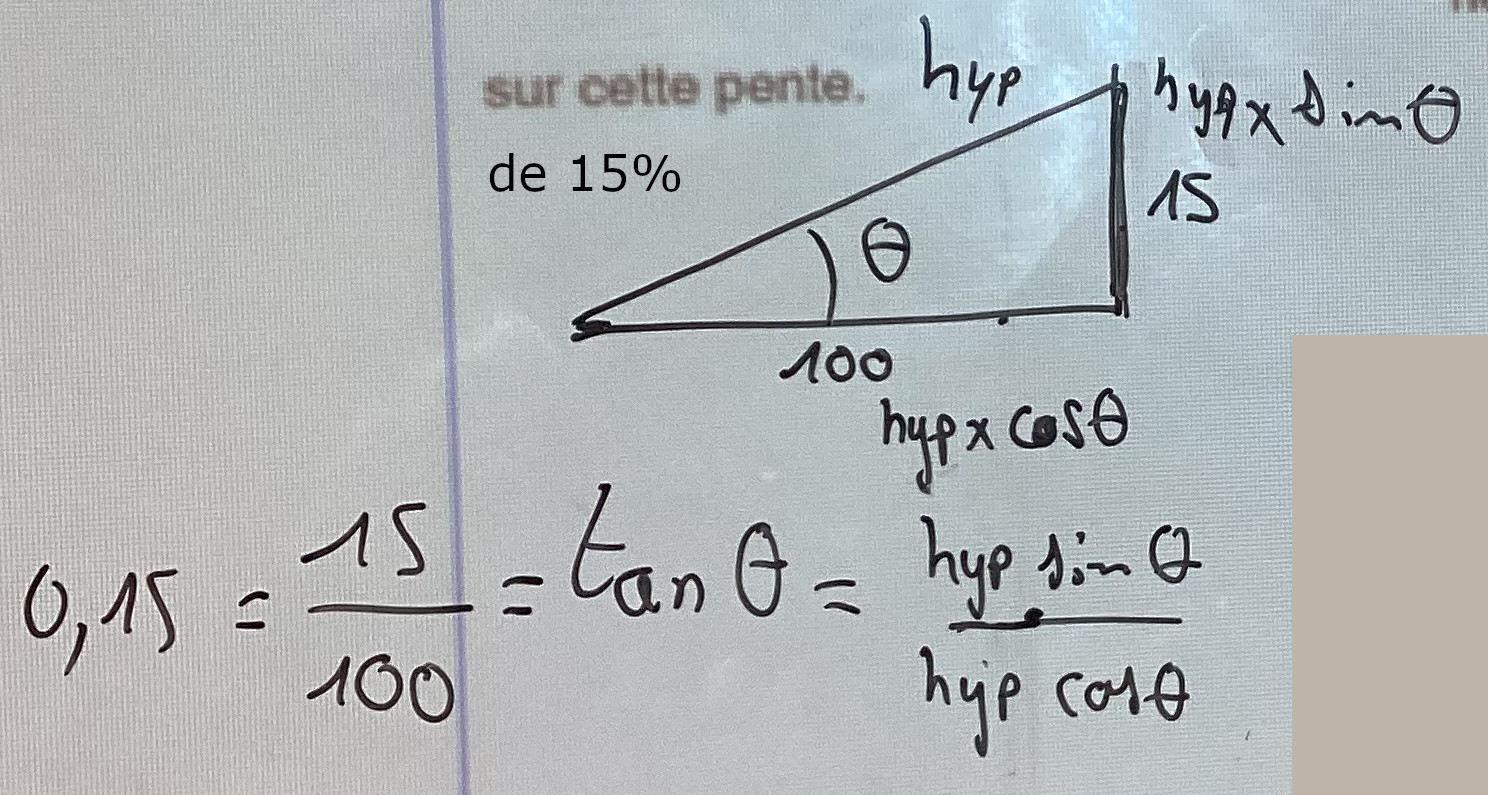 sur cette pente.
de 15%
hyp
hyp x sin θ
15
θ
100
hyp x cos θ
0,15 = 15/100 = tan θ = hyp sin θ / hyp cos θ